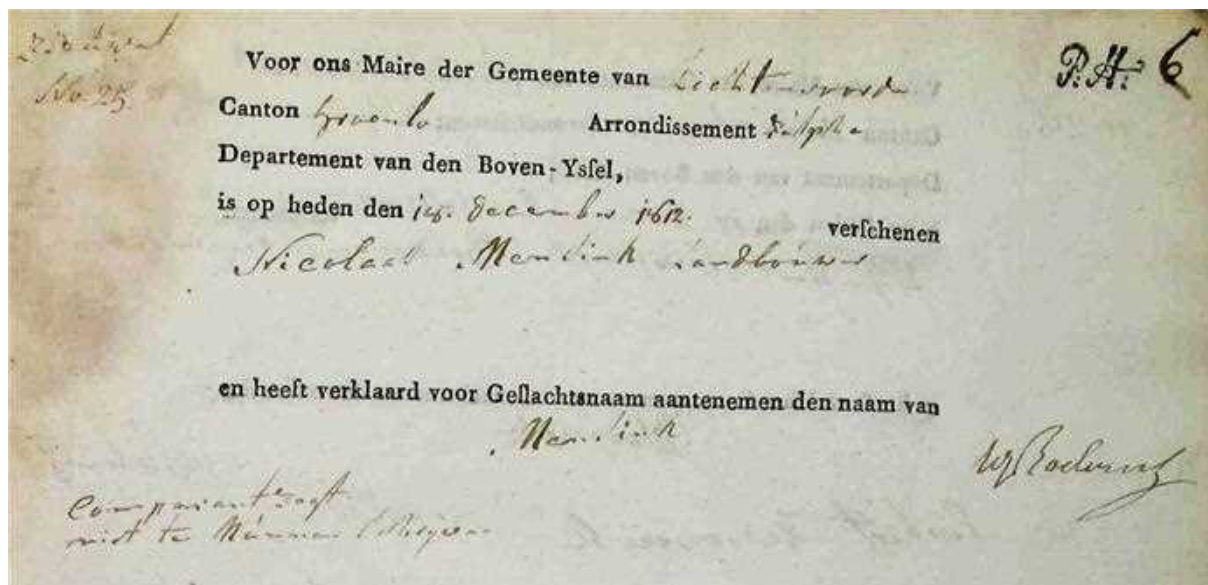 Zieuwent
No 25
P. H. 6
Voor ons Maire der Gemeente van Lichtenvoorde
Canton Groenlo Arrondissement Zutphen
Departement van den Boven-Ysſel,
is op heden den december 1812. verſchenen
Nicolaas Menlink Landbouwer
en heeft verklaard voor Geſlachtsnaam aantenemen den naam van
Menlink
Comparant zegt
niet te kunnen schrijven